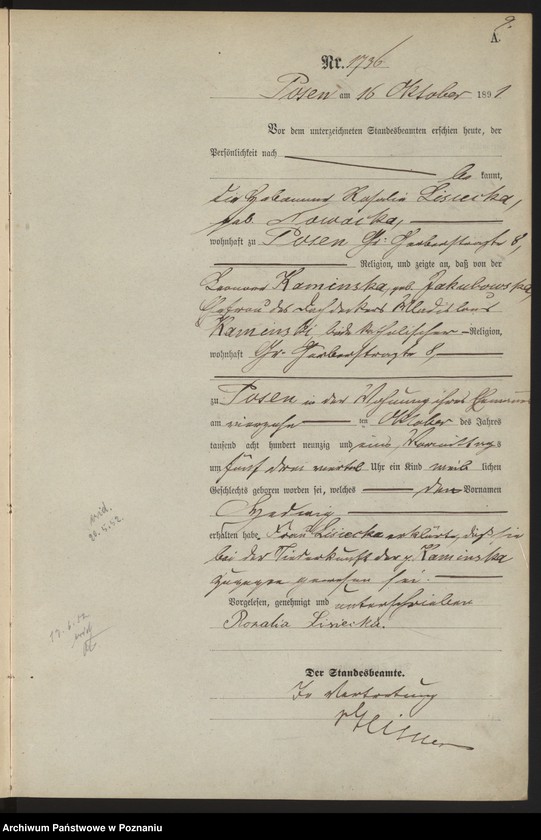 A
Nr. 1736
Posen am 16 Oktober 1891.
Vor dem unterzeichneten Standesbeamten erschien heute, der
Persönlichkeit nach
be kannt,
die Hebamme Rosalia Lisiecka,
geb. Nowacka,
wohnhaft zu Posen Gr. Gerberstraße 8,
Religion, und zeigte an, daß von der
Leonore Kaminska, geb. Jakubowska,
Ehefrau des Dachdeckers Wladislaus
Kaminski, beide katholischer Religion,
wohnhaft Gr. Gerberstraße 8,
zu Posen in der Wohnung ihres Ehemannes
am vierzehn ten Oktober des Jahres
tausend acht hundert neunzig und eins Vormittags
um fünf drei viertel Uhr ein Kind weib lichen
Geschlechts geboren worden sei, welches den Vornamen
Hedwig
erhalten habe. Frau Lisiecka erklärte, daß sie
bei der Niederkunft der p. Kaminska
zugegen gewesen sei.
Vorgelesen, genehmigt und unterschrieben
Rozalia Lisiecka.
Der Standesbeamte.
In Vertretung
Archiwum Państwowe w Poznaniu